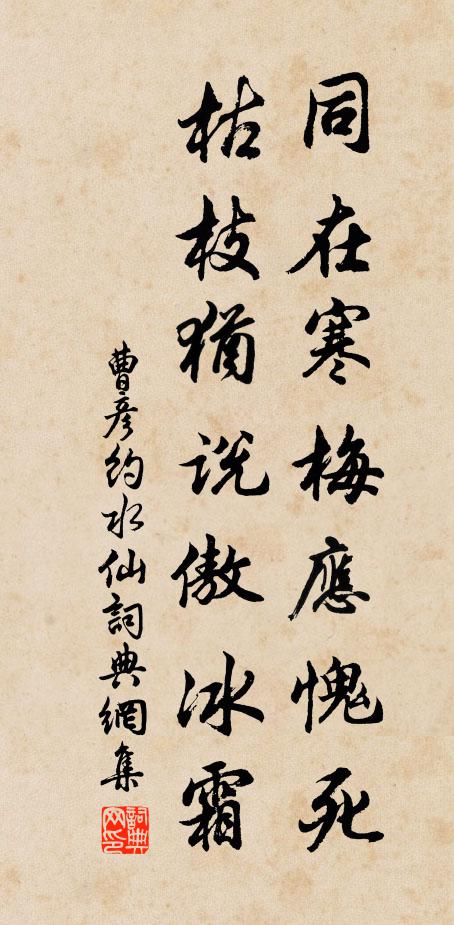 同在寒梅應愧死
枯枝猶説傲冰霜
曹彥約水仙詞典網集
詞典網印